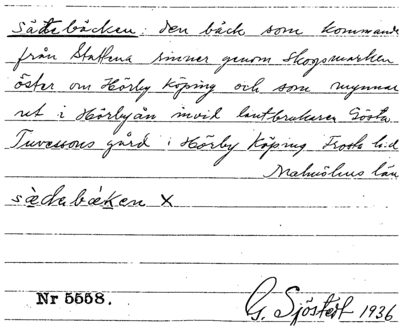 Sätebäcken: den bäck som kommande
från Staffena rinner genom Skogsmarken
öster om Hörby Köping och som mynnar
ut i Hörbyån invid lantbrukaren Gösta
Tuvessons gård i Hörby Köping Frosta hd
Malmöhus län
sädabäken X
Nr 5558.
G. Sjöstedt 1936